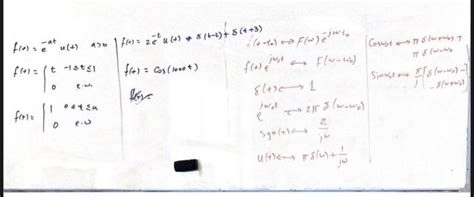 f(t) = e^{-at} u(t)   a>0
f(t) = { t   -1≤t≤1
0   e.w
f(t) = { 1   0≤t≤a
0   e.w
f(t) = 2e^{-t} u(t) + δ(t-2) + δ(t+3)
f(t) = Cos(1000t)
f(t-t₀) ↔ F(w) e^{-jwt₀}
f(t) e^{jw₀t} ↔ F(w-w₀)
δ(t) ↔ 1
e^{jw₀t} ↔ 2π δ(w-w₀)
sgn(t) ↔ 2/jw
u(t) ↔ π δ(w) + 1/jw
Cosw₀t ↔ π δ(w+w₀) +
π δ(w-w₀)
Sinw₀t ↔ π/j [ δ(w-w₀) -
δ(w+w₀) ]